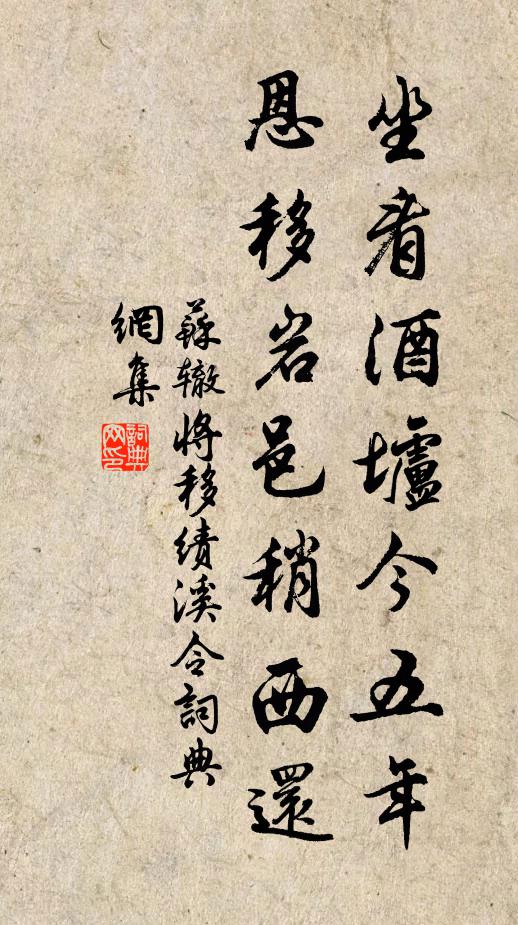 坐看酒壚今五年
恩移岩邑稍西還
蘇轍將移績溪令詞典
網集
詞典
网印